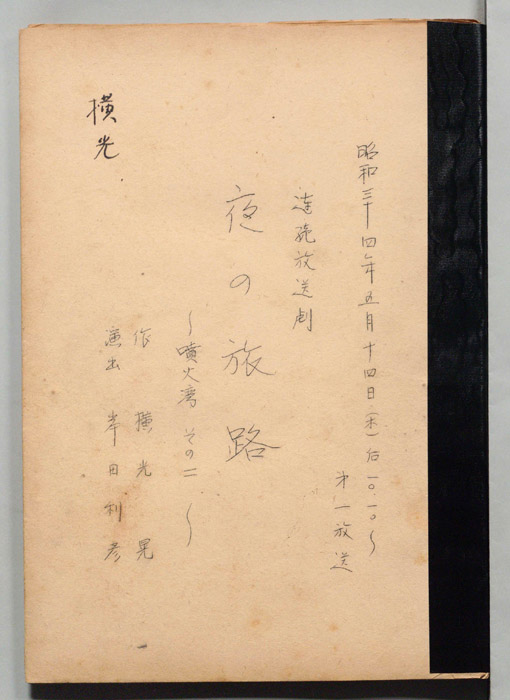 昭和三十四年五月十四日(木)后一〇.一〇〜
第一放送
連続放送劇
夜の旅路
〜噴火湾 その二 〜
作 横光晃
演出 岸田利彦
横光